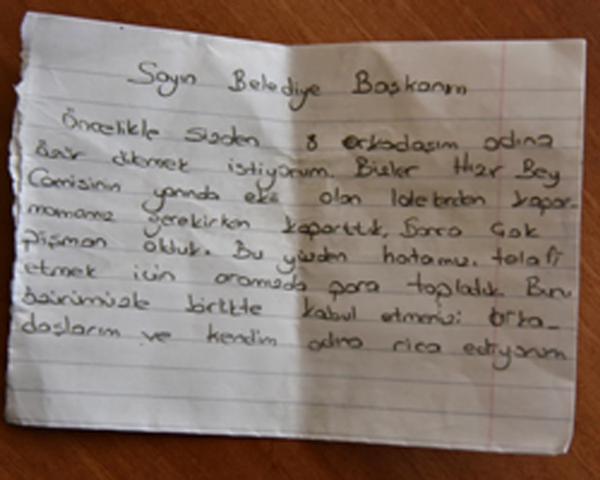 Sayın Belediye Başkanım
Öncelikle sizden 8 arkadaşım adına
özür dilemek istiyorum. Bizler Hızır Bey
Camisinin yanında ekili olan lalelerden kopar-
mamamız gerekirken koparttık, Sonra çok
pişman olduk. Bu yüzden hatamızı telafi
etmek için aramızda para topladık Bunu
özürümüzle birlikte kabul etmenizi arka-
daşlarım ve kendim adına rica ediyorum